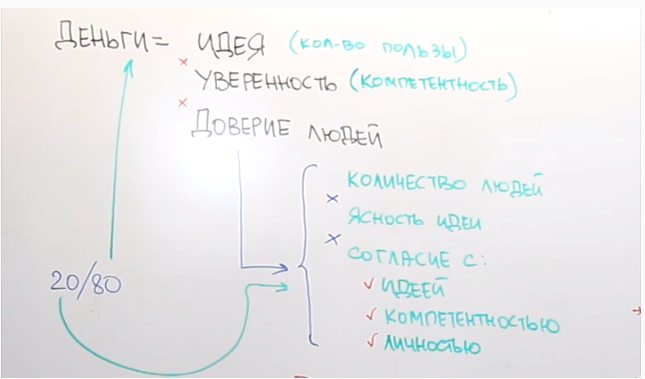 ДЕНЬГИ = ИДЕЯ (КОЛ-ВО ПОЛЬЗЫ)
× УВЕРЕННОСТЬ (КОМПЕТЕНТНОСТЬ)
× ДОВЕРИЕ ЛЮДЕЙ
КОЛИЧЕСТВО ЛЮДЕЙ
× ЯСНОСТЬ ИДЕИ
× СОГЛАСИЕ С:
20/80
✓ ИДЕЕЙ
✓ КОМПЕТЕНТНОСТЬЮ
✓ ЛИЧНОСТЬЮ